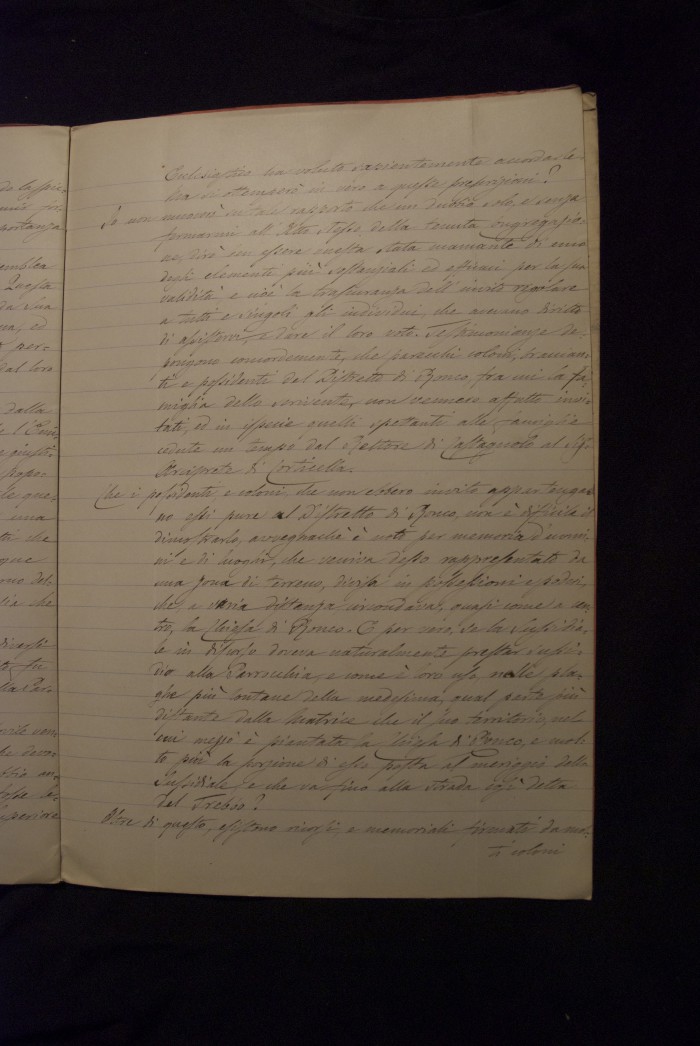 do la spie
mio fu
portanza
emblea
Questa
da Sua
ma, ed
per-
dal loro
dalla
e l'Emi-
e giusti-
popo-
le que-
una
ti che
que
sia che
divasi
to fu
lla Par-
Ecclesiastico ha voluto sapientemente accordarle
ha si ottemperò in vero a queste prescrizioni?
Io non muoverò su tale rapporto che un dubbio solo, e senza
fermarmi all'Atto stesso della tenuta Congregazio-
ne, dirò in essere questa stata mancante di uno
degli elementi più sostanziali ed efficaci per la sua
validità, e cioè la trascuranza dell'invito regolare
a tutti e singoli gli individui, che avevano diritto
di assistervi, e dare il loro voto. Testimonianze de-
pongono concordemente, che parecchi coloni, braccian-
ti e possidenti del Distretto di Ronco, fra cui la fa-
miglia dello scrivente, non vennero affatto invi-
tati, ed in specie quelli spettanti alle famiglie
cedute un tempo dal Rettore di Castagnolo al Sig.
Arciprete di Corticella.
Che i possidenti, e coloni, che non ebbero invito appartenga-
no essi pure al Distretto di Ronco, non è difficile il
dimostrarlo, avvegnachè è noto per memoria d'uomi-
ni e di luoghi, che veniva desso rappresentato da
una zona di terreno, divisa in possessioni e poderi,
che a varia distanza circondava, quasi come a cen-
tro, la Chiesa di Ronco. E per vero, se la Sussidia-
le in discorso doveva naturalmente prestar sussi-
dio alla Parrocchia, e come è loro uso, nelle pla-
ghe più lontane della medesima, qual parte più
distante dalla Matrice che il suo territorio, nel
cui mezzo è piantata la Chiesa di Ronco, e mol-
to più la porzione di esso posta al meriggio della
Sussidiale, e che va fino alla strada così detta
del Trebbo?
Oltre di questo, esistono ricorsi, e memoriali firmati da mol-
ti coloni